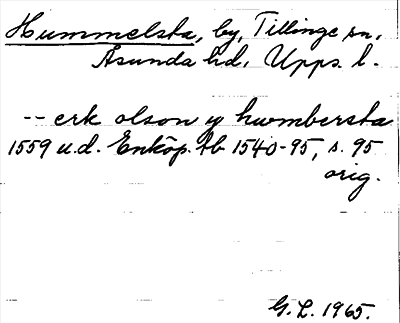 Hummelsta, by, Tillinge sn,
Åsunda hd, Upps. l.
-- erk olson y hwmbersta
1559 u.d. Enköp. tb 1540-95, s. 95
orig.
G. L. 1965.